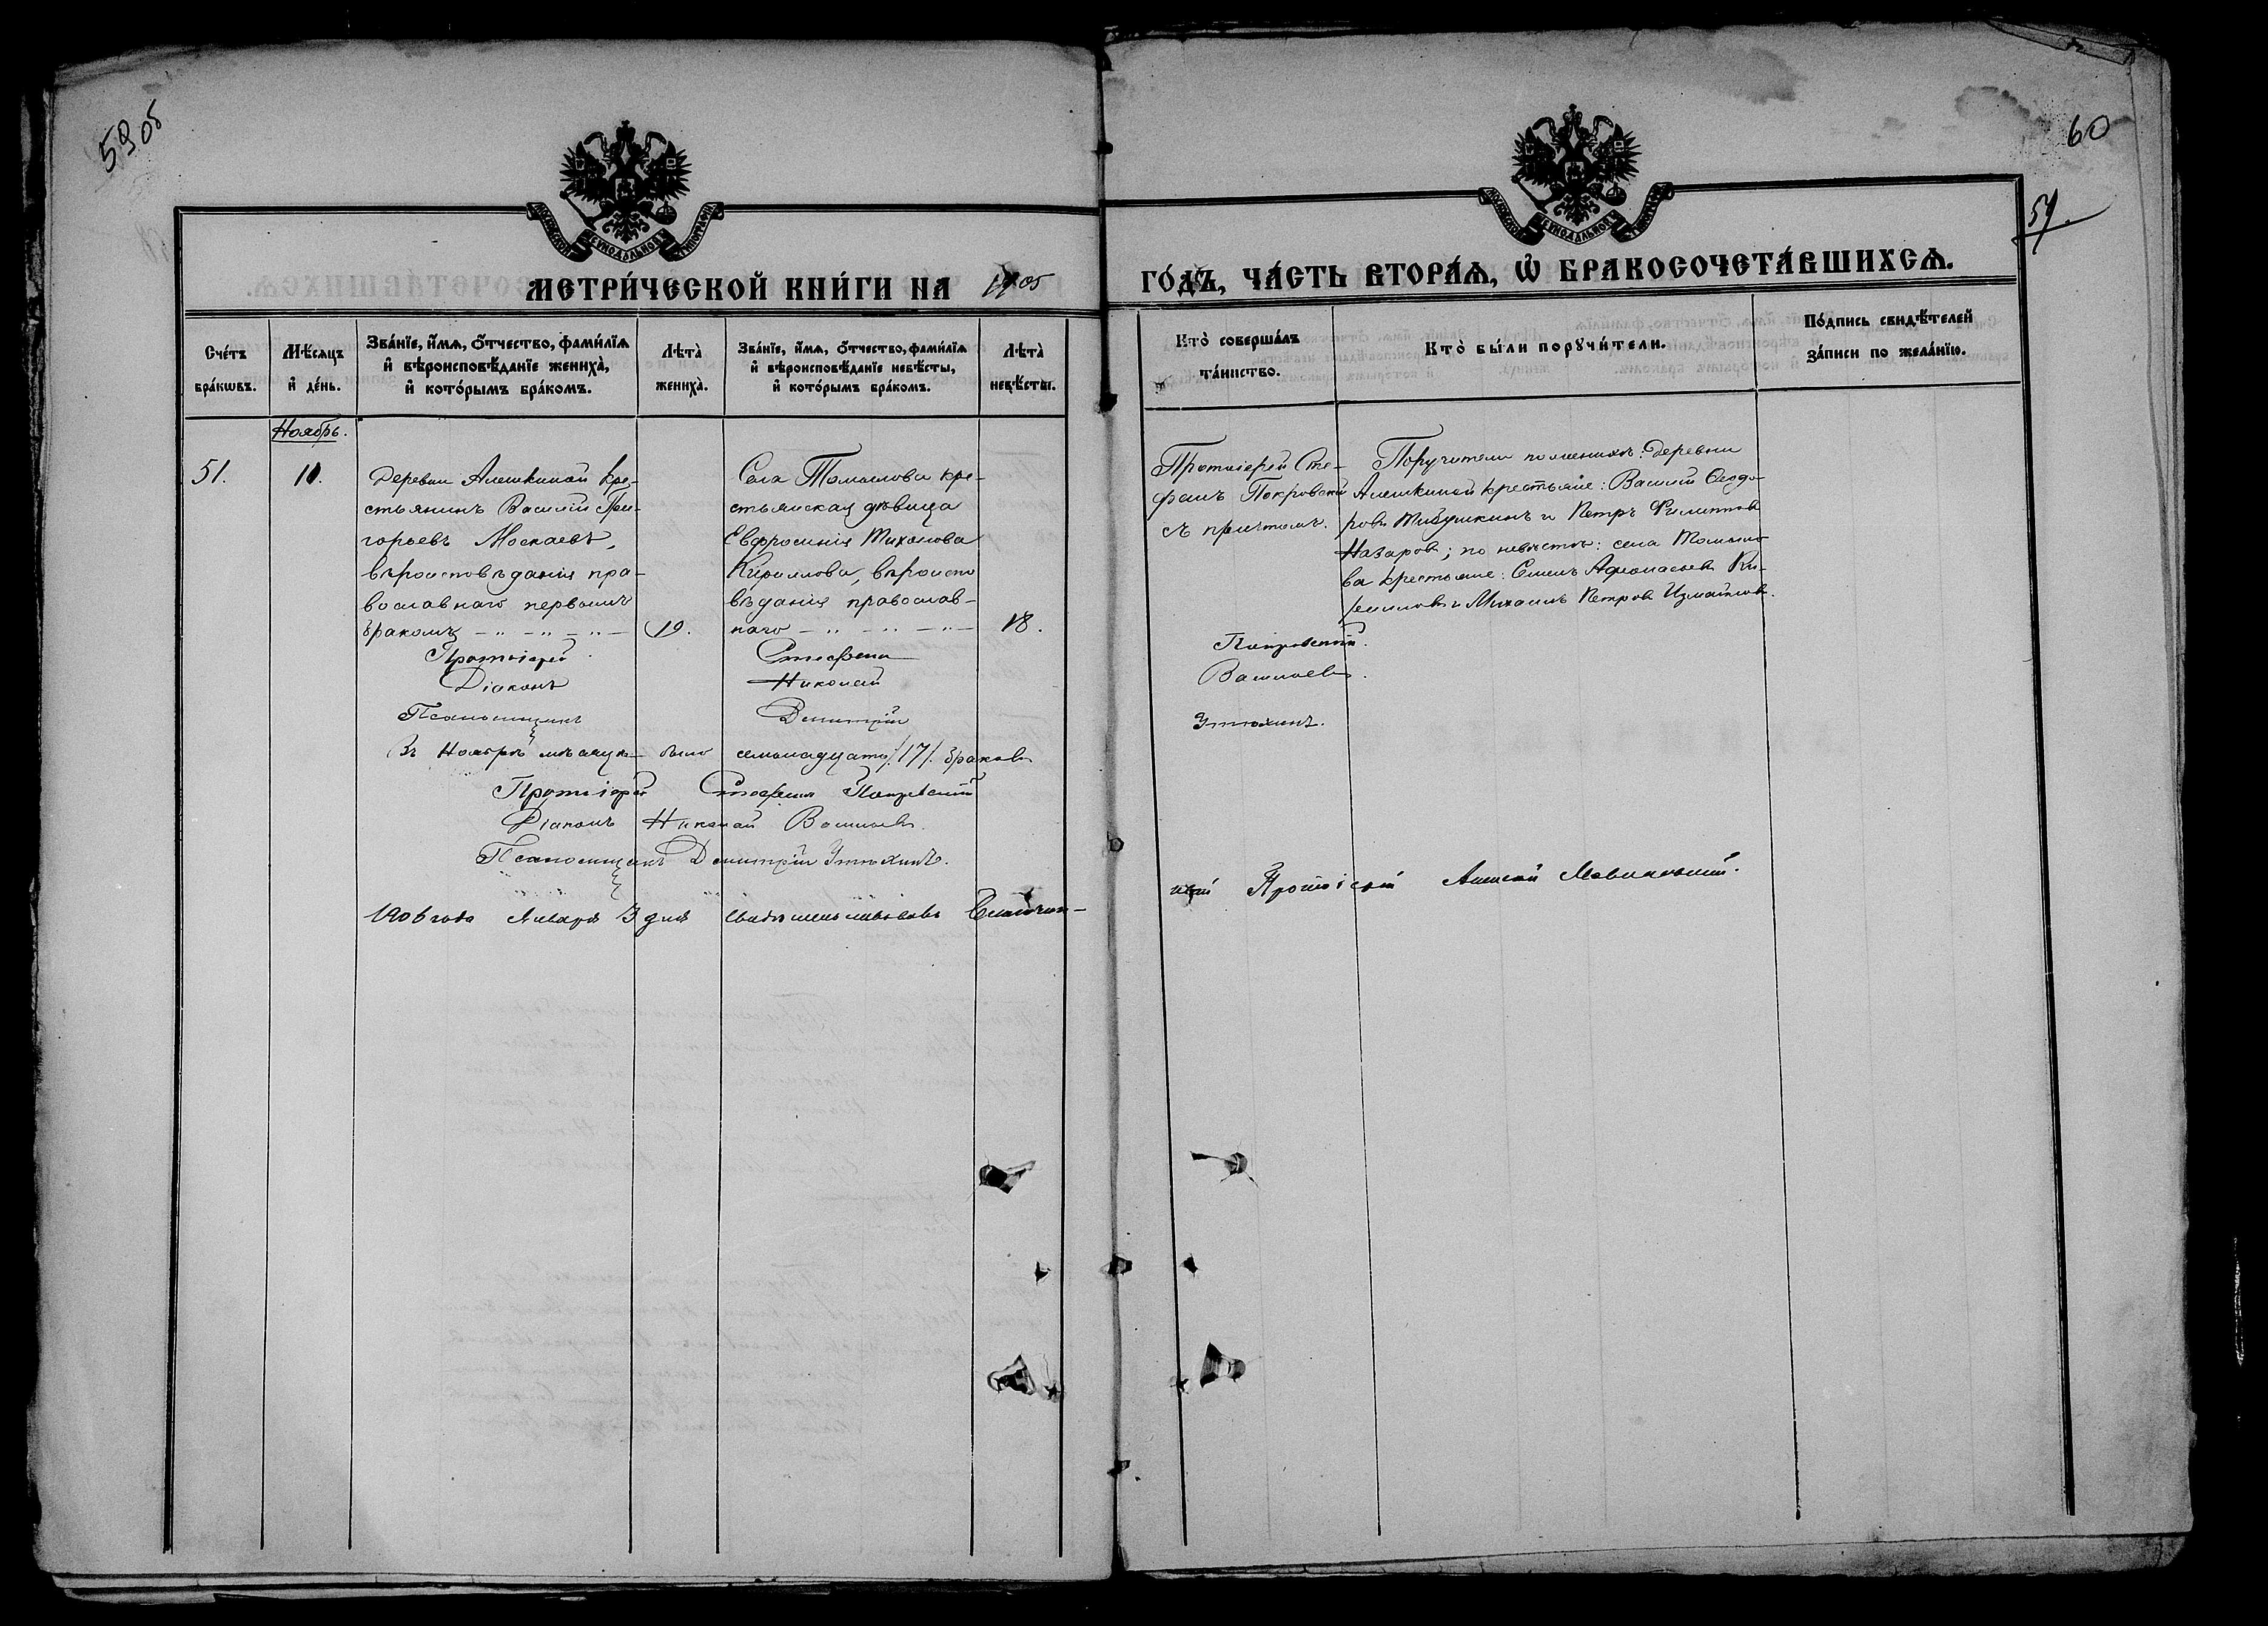 59 об
60
59.
МОСКОВСКОЙ СѴНОДАЛЬНОЙ ТИПОГРАФИИ
МОСКОВСКОЙ СѴНОДАЛЬНОЙ ТИПОГРАФИИ
МЕТРИ́ЧЕСКОЙ КНИ́ГИ НА 1905
ГО́ДЪ, ЧА́СТЬ ВТОРА́Ѧ, Ѡ҆ БРАКОСОЧЕТА́ВШИХСѦ.
Сче́тъ
бра́кѡвъ.
Мѣ́сяцъ
и҆ де́нь.
Зва́нїе, и҆́мѧ, о҆́тчество, фами́лїѧ
и҆ вѣроисповѣ́данїе жениха̀,
и҆ кото́рымъ бра́комъ.
Лѣта̀
жениха̀.
Зва́нїе, и҆́мѧ, о҆́тчество, фами́лїѧ
и҆ вѣроисповѣ́данїе невѣ́сты,
и҆ кото́рымъ бра́комъ.
Лѣта̀
невѣ́сты.
Кто̀ соверша́лъ
та́инство.
Кто̀ бы́ли порꙋчи́тели.
По́дпись свидѣ́телей
за́писи по жела́нїю.
Ноябрь.
51.
11.
Деревни Алешкиной кре-
стьянинъ Василій Гри-
горьевъ Москаевъ,
вѣроисповѣданія пра-
вославнаго первымъ
бракомъ
19.
Села Томылова кре-
стьянская дѣвица
Евфросинія Тихонова
Кириллова, вѣроиспо
вѣданія православ-
наго
18.
Протоіерей Сте-
фанъ Покровскій
съ причтомъ.
Поручители по женихѣ: деревни
Алешкиной крестьяне: Василій Ѳеодо-
ровъ и Петръ Филиппов
Назаровъ; по невѣстѣ: села Томыло-
ва крестьяне: Семенъ Аѳанасьевъ Ки-
рилловъ и Михаилъ Петровъ Измайлов.
Протоіерей Стефанъ Покровскій.
Діаконъ Николай Васильевъ.
Псаломщикъ Димитрій Утѣхинъ.
Въ Ноябрѣ мѣсяцѣ было семнадцать /17/. браковъ
Протоіерей Стефанъ Покровскій
Діаконъ Николай Васильевъ.
Псаломщикъ Димитрій Утѣхинъ.
1906 года Января 3 дня Благочин-
ный Протоіерей Алексій